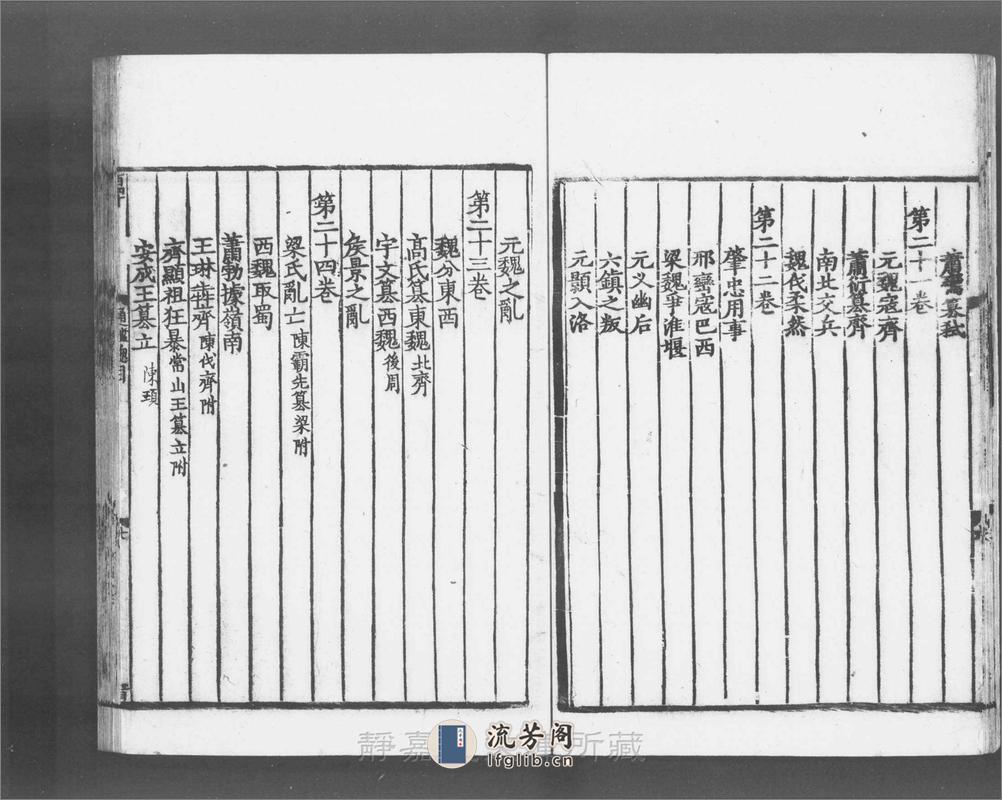 蕭鸞篡弒
第二十一卷
元魏寇齊
蕭衍篡齊
南北交兵
魏伐柔然
第二十二卷
肇忠用事
邢巒寇巴西
梁魏爭淮堰
元义幽后
六鎮之叛
元顥入洛
元魏之亂
第二十三卷
魏分東西
高氏篡東魏 北齊
宇文篡西魏 後周
侯景之亂
第二十四卷
梁氏亂亡 陳霸先篡梁附
西魏取蜀
蕭勃據嶺南
王琳奔齊 陳伐齊附
齊顯祖狂暴 常山王篡立附
安成王篡立 陳頊
靜嘉 所藏
流芳阁
lfglib.cn